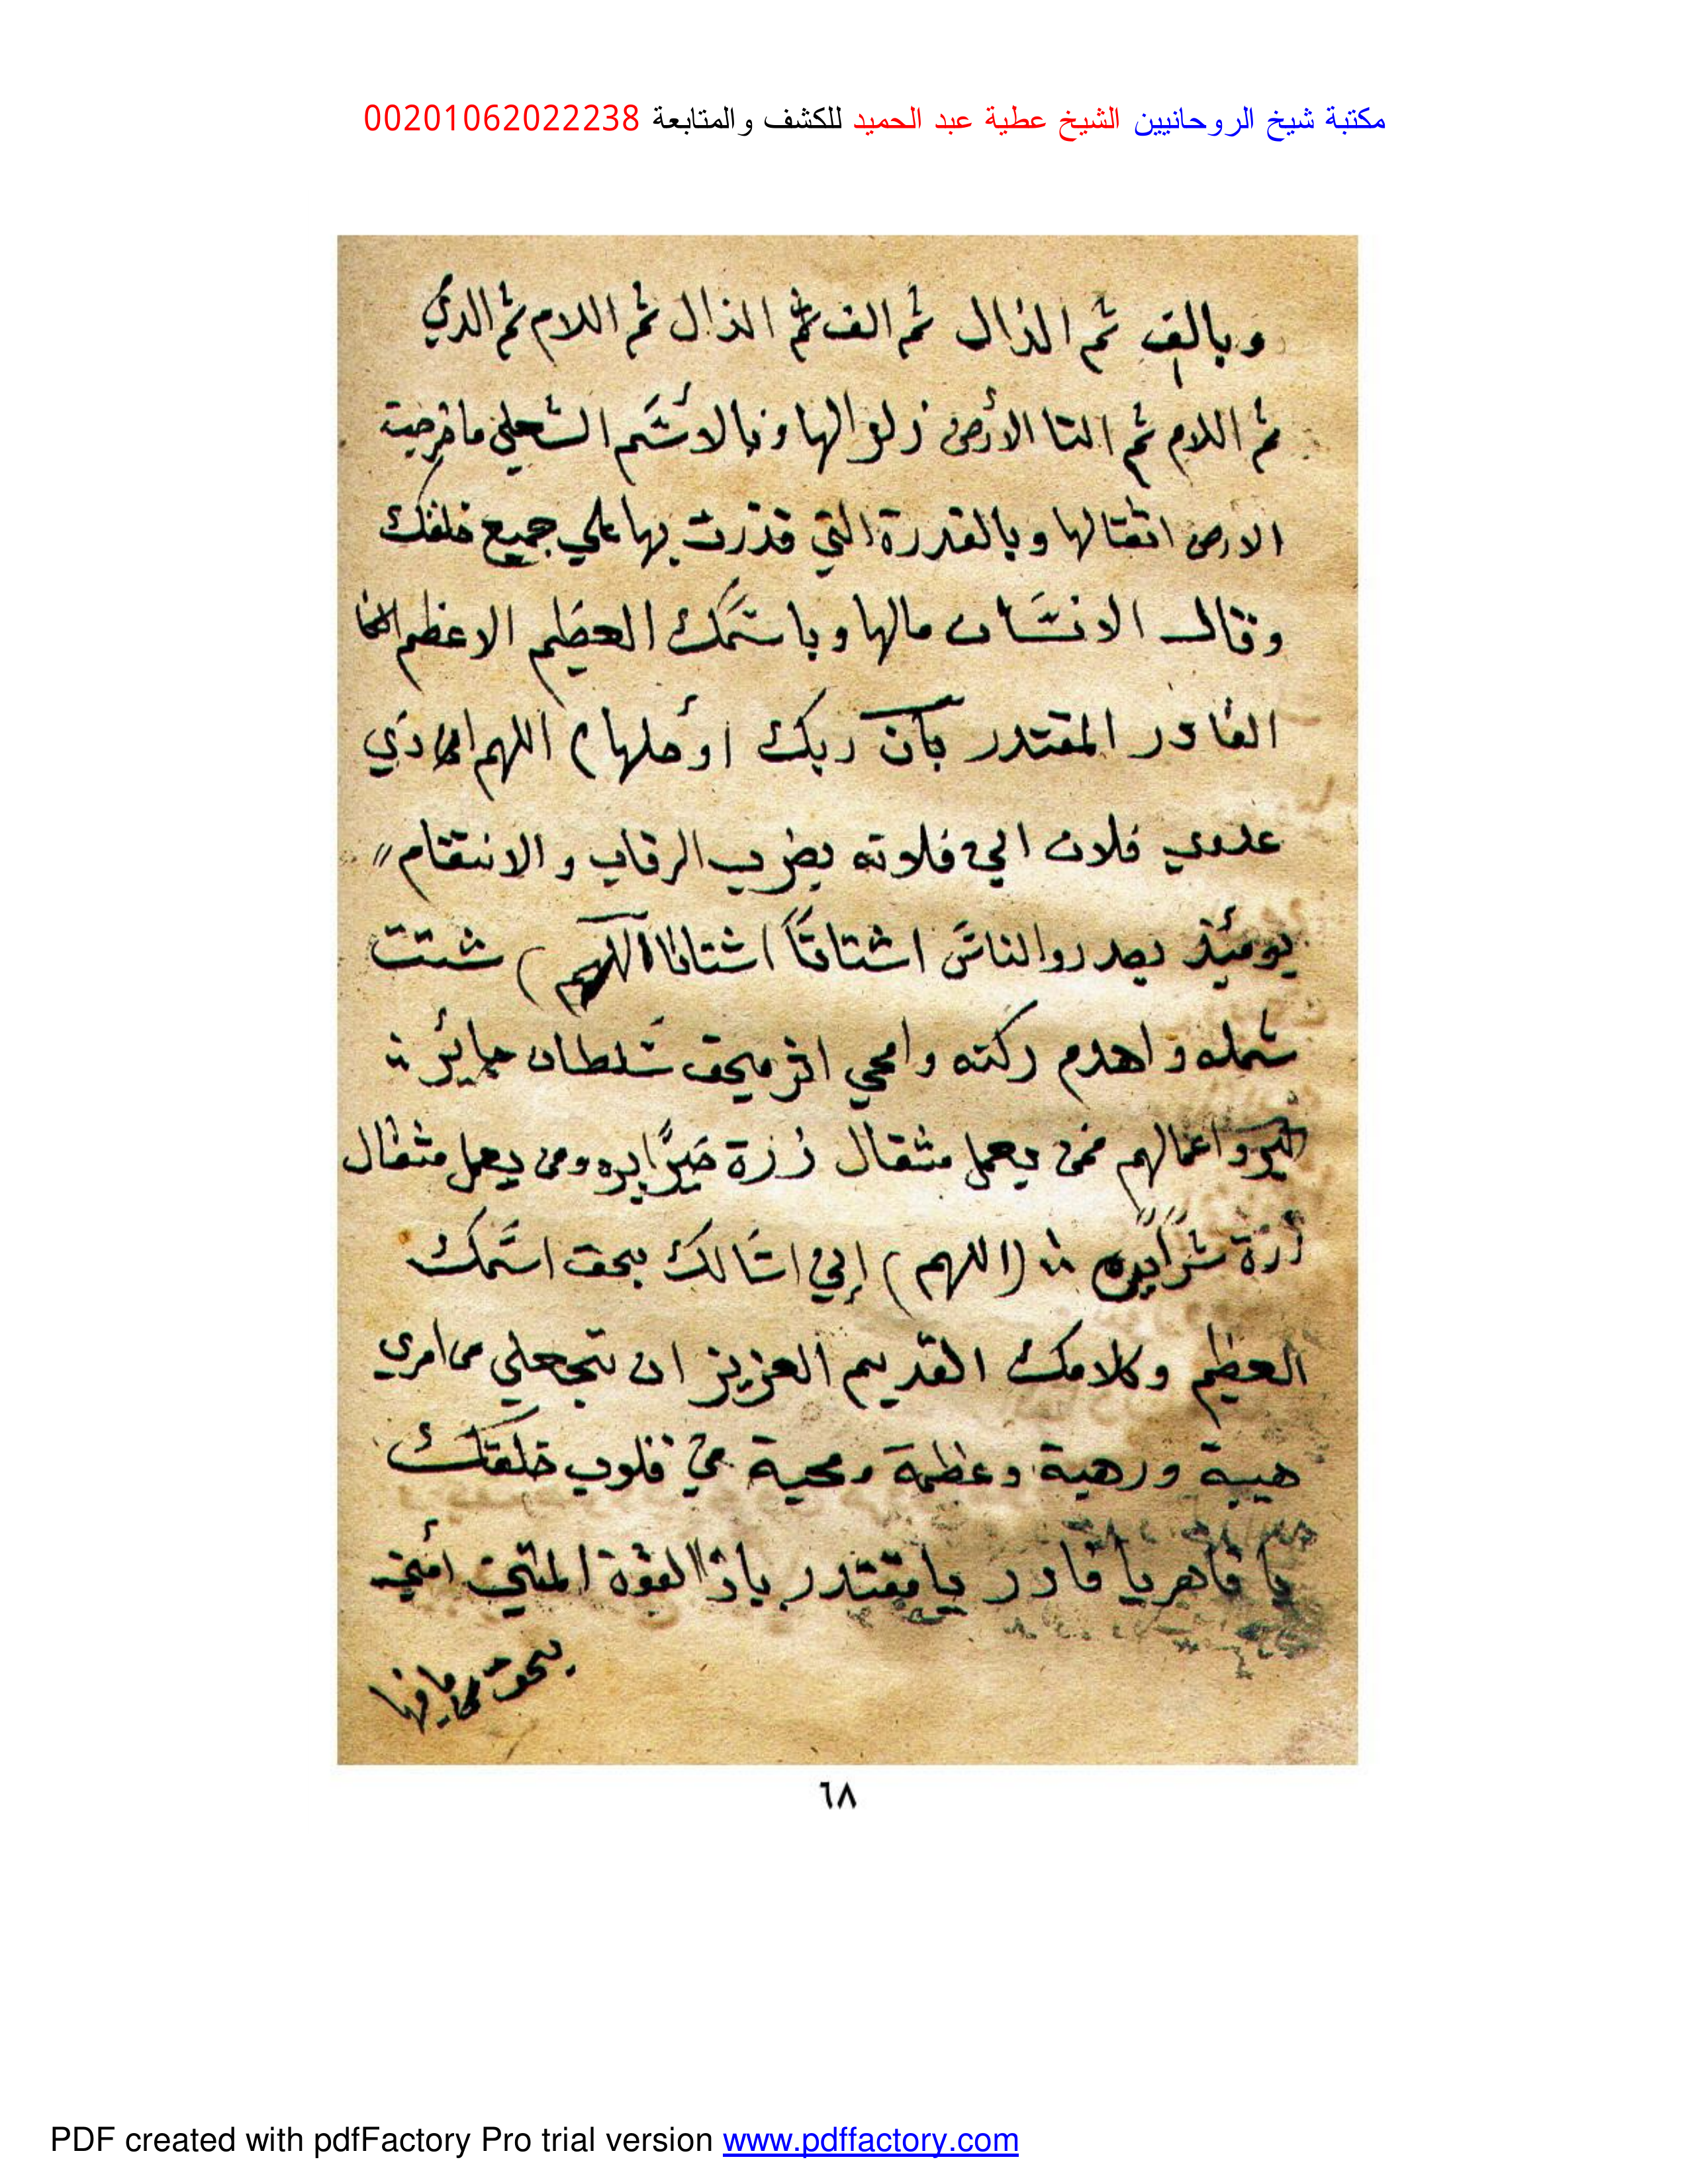 مكتبة شيخ الروحانيين الشيخ عطية عبد الحميد للكشف والمتابعة 00201062022238
وبالف ثم الذال ثم الف ثم الذال ثم اللام ثم الذي
ثم اللام ثم التا الأرض زلزالها وبالاسم
الارض اثقالها وبالقدرة التي قدرت بها علي جميع خلقك
وقال الانسان مالها وباسمك العظيم الاعظم
القادر المقتدر بآن ربك أوحلها ) اللهم
عدوي فلان الي فلاته بضرب الرقاب والانتقام "
يومئذ يصدروا الناس اشتاتاً اشتاتا اللهم ) شتت
شمله واهدم ركنه وامحي اثر سلطان جائر
ليرو اعمالهم فمن يعمل مثقال زرة خيرًا يره ومن يعمل مثقال
زرة شرًا يره (اللهم) إني اسالك بحق اسمك
العظيم وكلامك القديم العزيز ان تجعلي من امري
هيبة ورهبة وعظمة ومحبة في قلوب خلقك
يا قاهر يا قادر يا مقتدر ياذا القوة
بحق
٦٨
PDF created with pdfFactory Pro trial version www.pdffactory.com